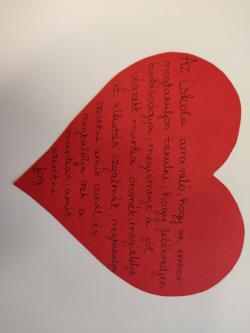 Az iskola arra való, hogy az ember
megtanuljon tanulni, hogy felébredjen
tudásvágya, megismerje a jól
végzett munka örömét, megízlelje
az alkotás izgalmát, megtanulja
szeretni amit csinál, és
megtalálja azt a
munkát, amit
szeretni
fog